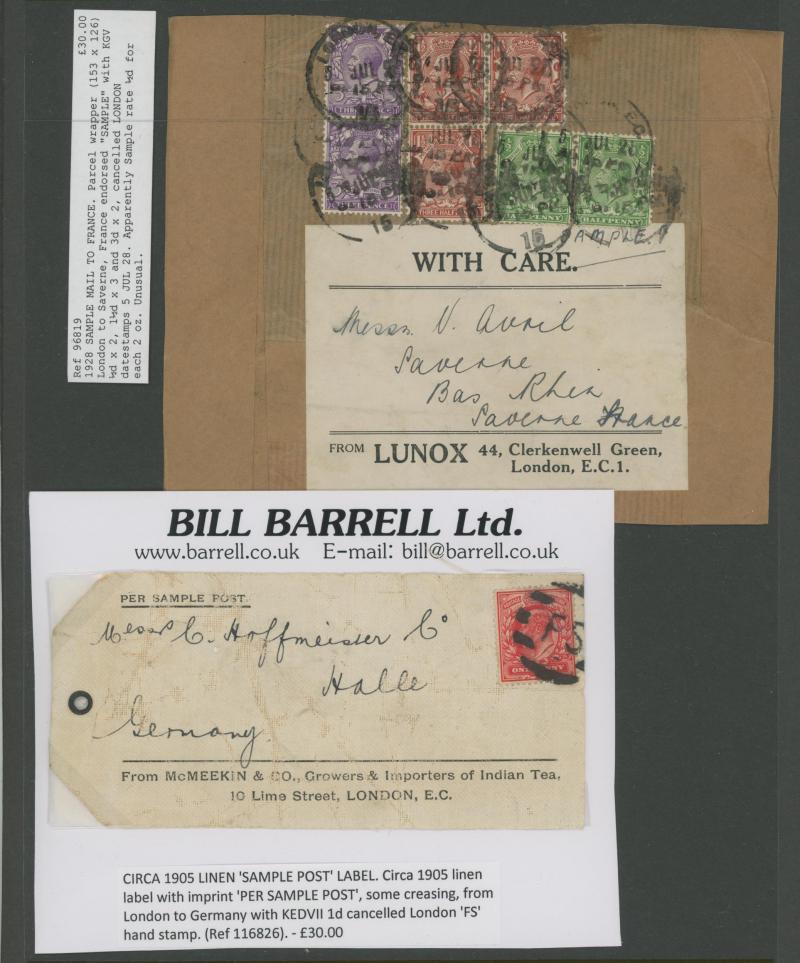 Ref 96819 £30.00
1928 SAMPLE MAIL TO FRANCE. Parcel wrapper (153 x 126)
London to Saverne, France endorsed "SAMPLE" with KGV
½d x 2, 1½d x 3 and 3d x 2, cancelled LONDON
datestamps 5 JUL 28. Apparently Sample rate ½d for
each 2 oz. Unusual.
THREE HALF
HALFPENNY
HALFPENNY
15
15
SAMPLE.
WITH CARE.
Messrs V. Avril
Saverne
Bas Rhin
Saverne France
FROM LUNOX 44, Clerkenwell Green,
London, E.C.1.
BILL BARRELL Ltd.
www.barrell.co.uk E-mail: bill@barrell.co.uk
PER SAMPLE POST.
Messrs C. Hoffmeister Co
Halle
Germany.
ONE PENNY
FS
From McMEEKIN & CO., Growers & Importers of Indian Tea,
10 Lime Street, LONDON, E.C.
CIRCA 1905 LINEN 'SAMPLE POST' LABEL. Circa 1905 linen
label with imprint 'PER SAMPLE POST', some creasing, from
London to Germany with KEDVII 1d cancelled London 'FS'
hand stamp. (Ref 116826). - £30.00